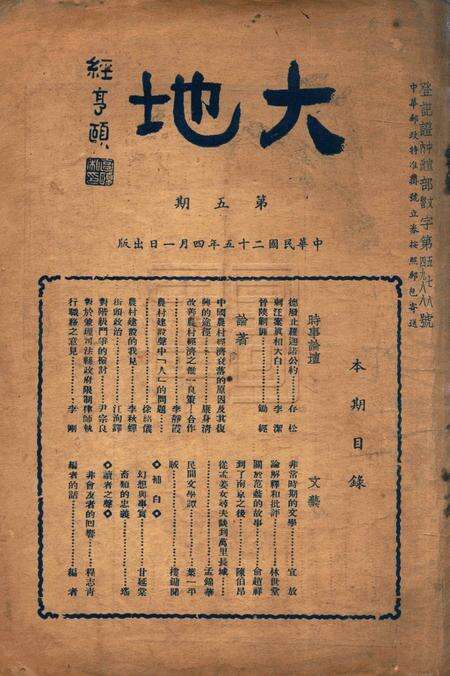 大地
經亨頤
第五期
中華民國二十五年四月一日出版
登記證中宣部數字第五七六號
中華郵政特准掛號立券按照郵包寄送
本期目錄
時事論壇
德廢止羅迦諾公約……春松
刺汪案眞相大白……李潔
晉陝剿匪……錫經
論著
中國農村經濟衰落的原因及其復
興的途徑……康身濟
改善農村經濟之惟一良策—合作
……李靜霞
農村建設聲中「人」的問題……
……徐紹儀
農村建設的我見……李秋蟬
街頭政治……江洵譯
對階級鬥爭的檢討……尹宗良
對於兼理司法縣政府限制律師執
行職務之意見……李剛
文藝
非常時期的文學……宜放
論解釋和批評……林世堂
關於范蠡的故事……俞趙祥
到了南京之後……陳伯昂
從孟姜女尋夫談到萬里長城……
……孟錦華
民間文學譚……葉一平
賊……樓鏽閣
◇補白◇
幻想與事實……甘延堂
奮勉的忠義……瑤
◇讀者之聲◇
非會友者的回響……程志青
編者的話……編者